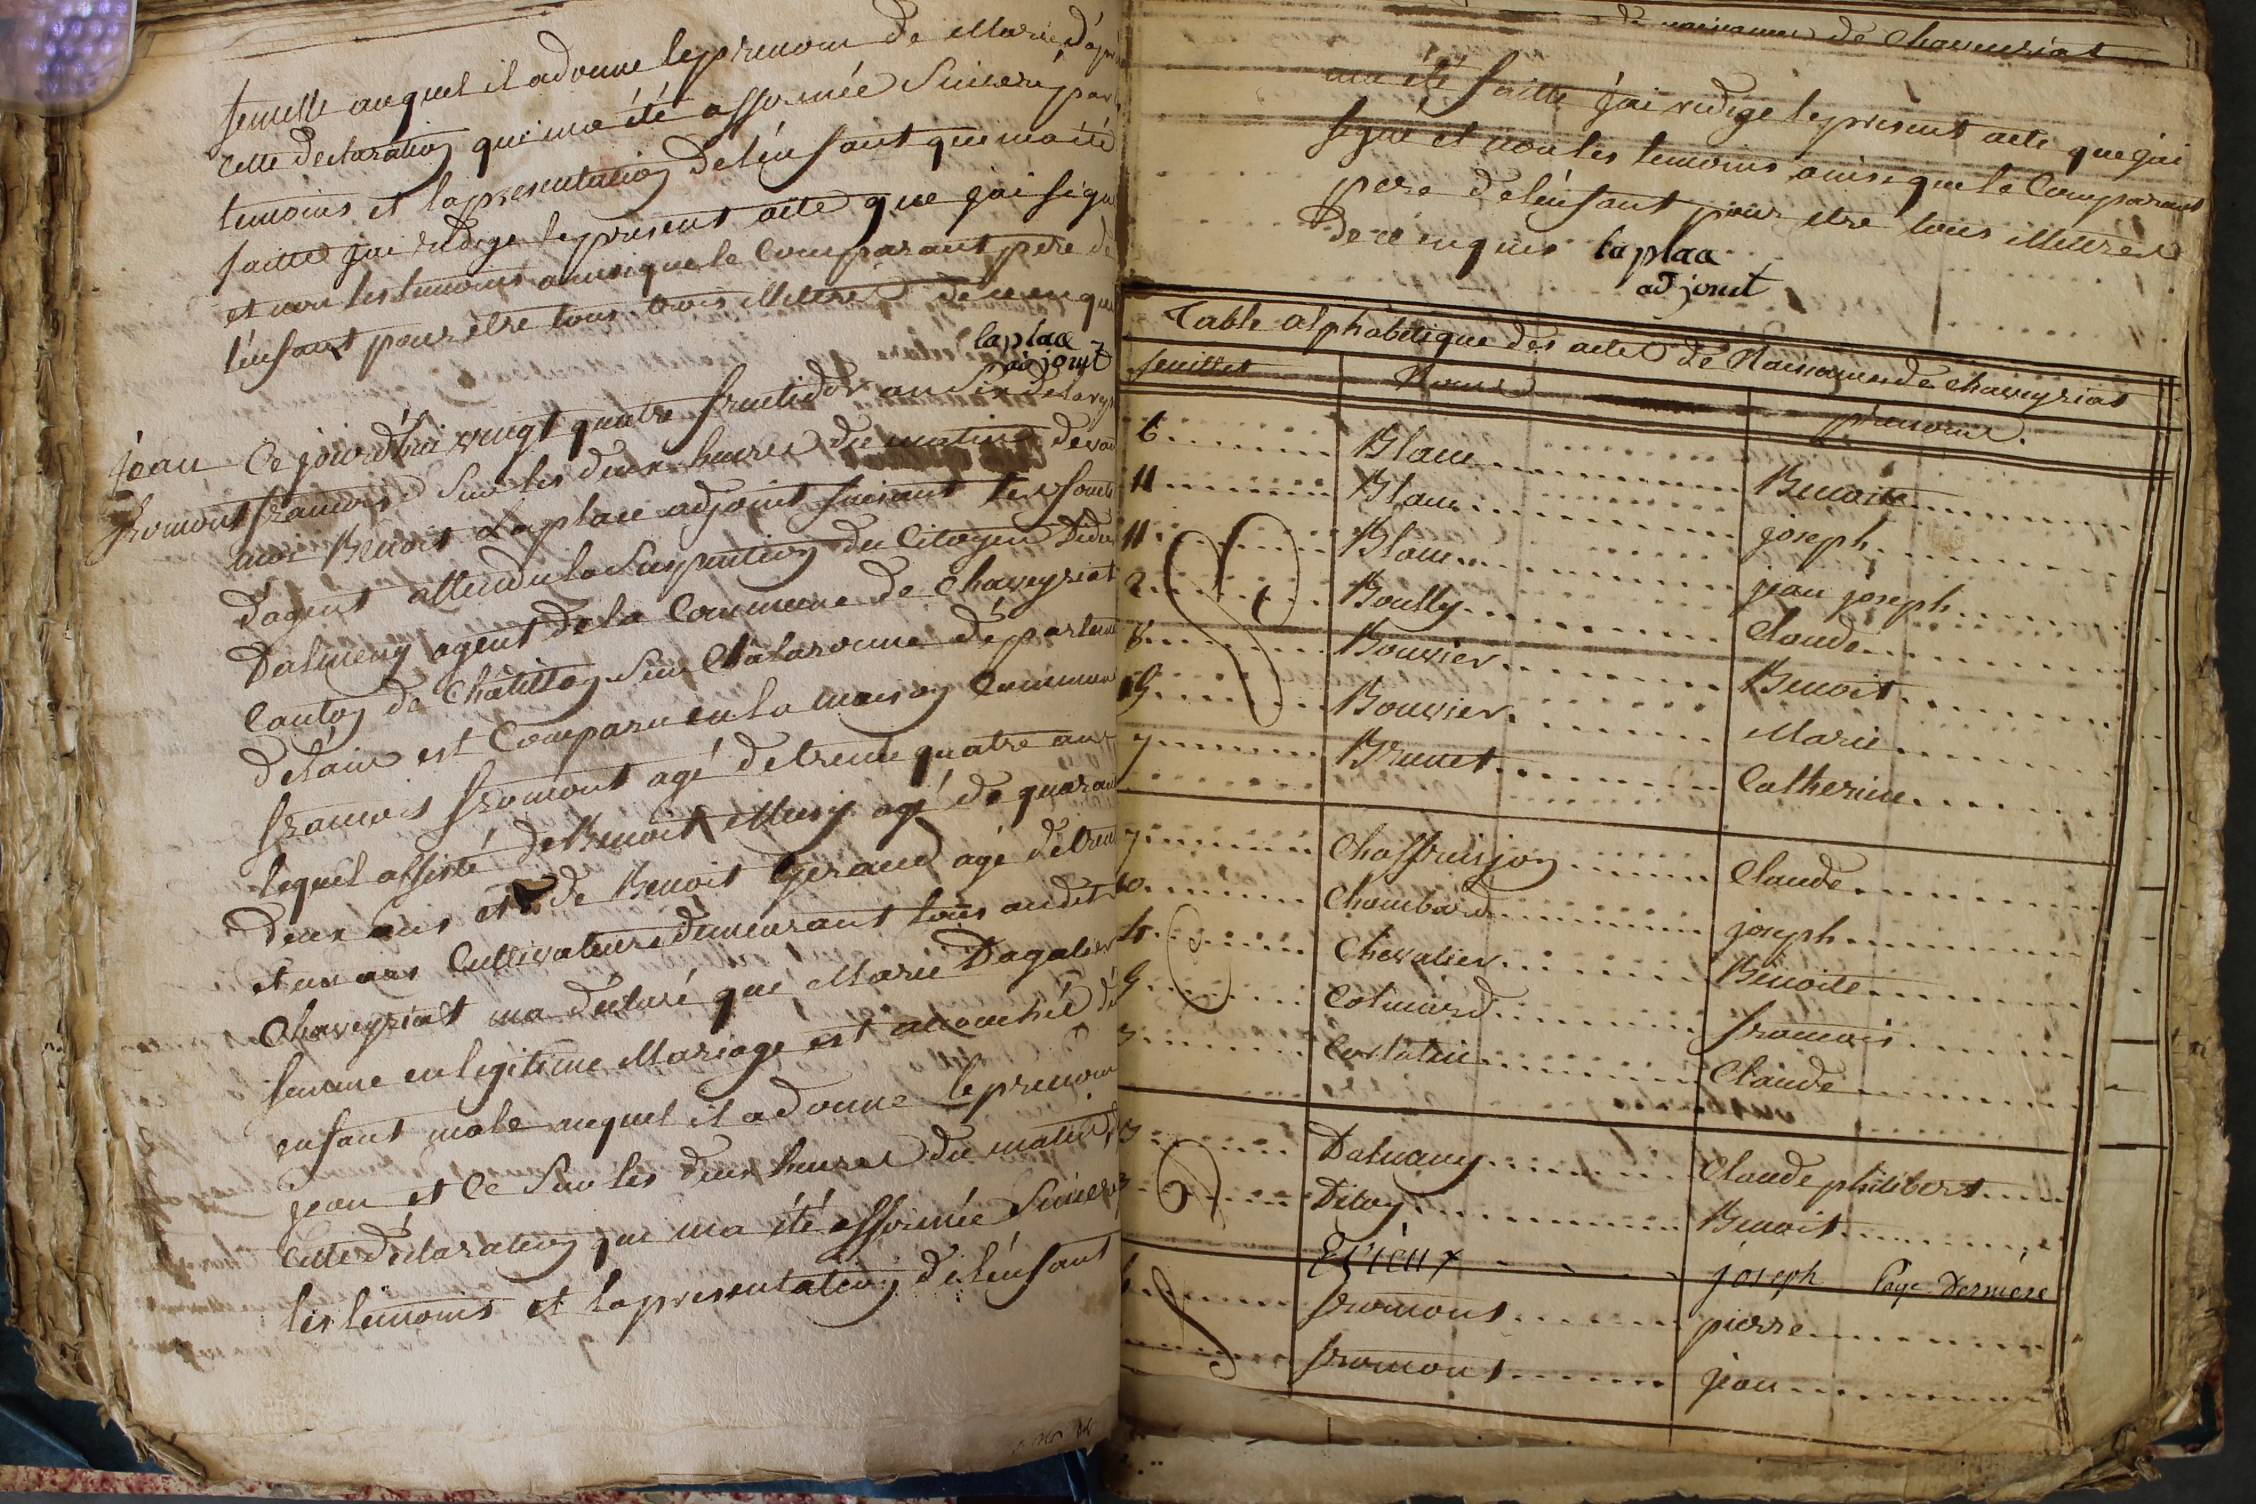 femelle auquel il a donné le prenom de Marie d'apr
cette declaration qui ma été affirmée Sincere par
temoins et la presentation de l'enfant qui ma été
faitte jai redige le present acte que jai signé
et non les temoins ainsi que le Comparant pere de
l'enfant pour être tous trois illitrés de ce enquis
laplace
adjoint
jean
fromont
Ce jourd'hui vingt quatre fructidor an Six de la rep
francois Sur les deux heures du matin devan
moi Benoit Laplace adjoint faisant les foncti
d'agent attendu la Suspention du Citoyen Didie
Dalmeny agent de la Commune de Chaveyriat
Canton de Châtillon Sur Chalaronne département
de lain est Comparu en la maison Commune
francois fromont agé de trente quatre ans
lequel assisté de Benoit Musy agé de quarante
deux ans et de Benoit Geraud agé de trente
et un ans Cultivateurs demeurant tous audit
Chaveyriat ma déclaré que Marie Dagalier
femme en legitime Mariage est accouchée d'un
enfant male auquel il a donné le prenom
jean et Ce Sur les deux heures du matin
Cette déclaration qui ma été affirmée Sincere
les temoins et la presentation de l'enfant
de naissances de Chaveyriat
ma été faitte jai redigé le present acte que jai
signé et non les temoins ainsi que le Comparant
pere de l'enfant pour etre tous illitres
de ce enquis laplace
adjoint
Table alphabetique des actes de Naissances de chaveyriat
feuillets Noms prenoms
6 Blanc Benoite
11 Blanc joseph
11 Blanc jean joseph
2 B Boully Claude
8 Bouvier Benoit
Bouvier Marie
7 Brunet Catherine
7 Chaffurijon Claude
10 Chambard joseph
4 C Chevalier Benoite
9 Colmard francois
3 Curlatin Claude
3 Dalmany Claude philibert
3 D Diloy Benoit
Erieux joseph Page Derniere
fromont pierre
f fromont jean